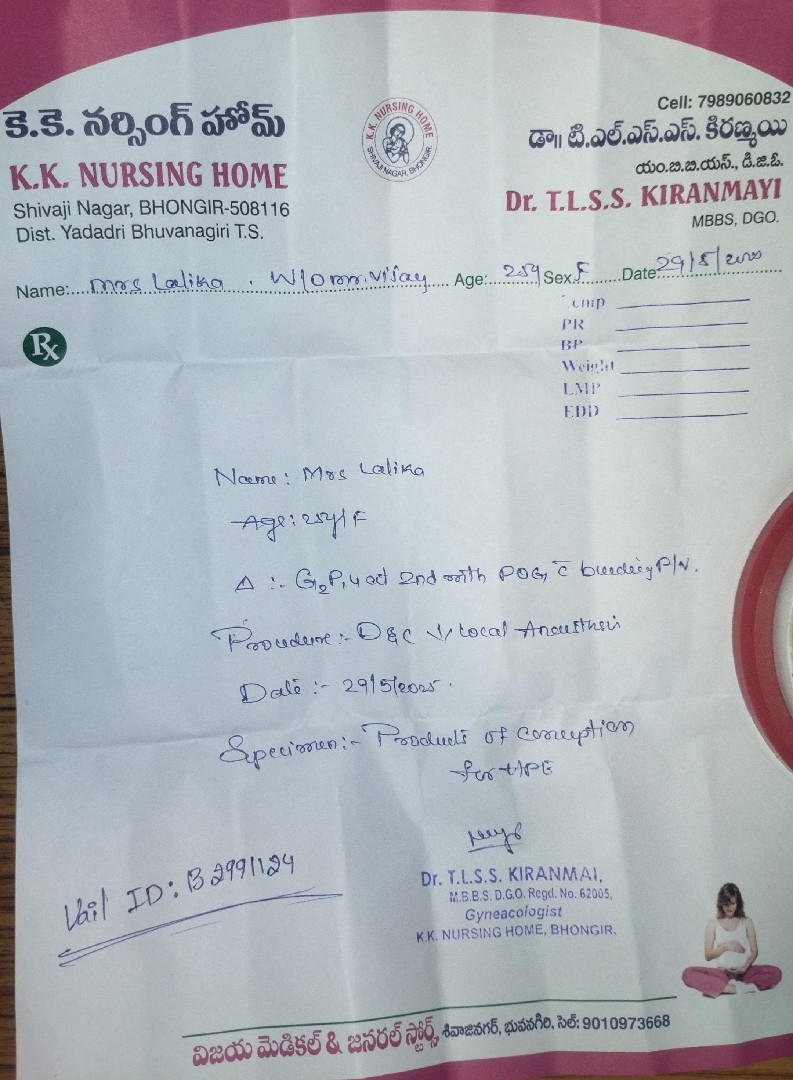 Cell: 7989060832
కె.కె. నర్సింగ్ హోమ్
K.K. NURSING HOME
Shivaji Nagar, BHONGIR-508116
Dist. Yadadri Bhuvanagiri T.S.
K.K. NURSING HOME
SHIVAJI NAGAR, BHONGIR.
డా॥ టి.ఎల్.ఎస్.ఎస్. కిరణ్మయి
యం.బి.బి.యస్., డి.జి.ఓ.
Dr. T.L.S.S. KIRANMAYI
MBBS, DGO.
Name:....Mrs Lalika . W/O mr. vijay.... Age:...25y Sex F.....Date:29/5/
Rx
Temp
PR
BP
Weight
LMP
EDD
Name: Mrs Lalika
Age: 25y/F
Δ :- G2P1 2nd with POG c bleeding P/V.
Procedure:- D&C Local
Date :- 29/5/2025.
Specimen:- Products of conception
for HPE
Dr. T.L.S.S. KIRANMAI,
M.B.B.S. D.G.O. Regd. No. 62005,
Gyneacologist
K.K. NURSING HOME, BHONGIR.
Vail ID: B2991124
విజయ మెడికల్ & జనరల్ స్టోర్స్, శివాజినగర్, భువనగిరి. సెల్: 9010973668